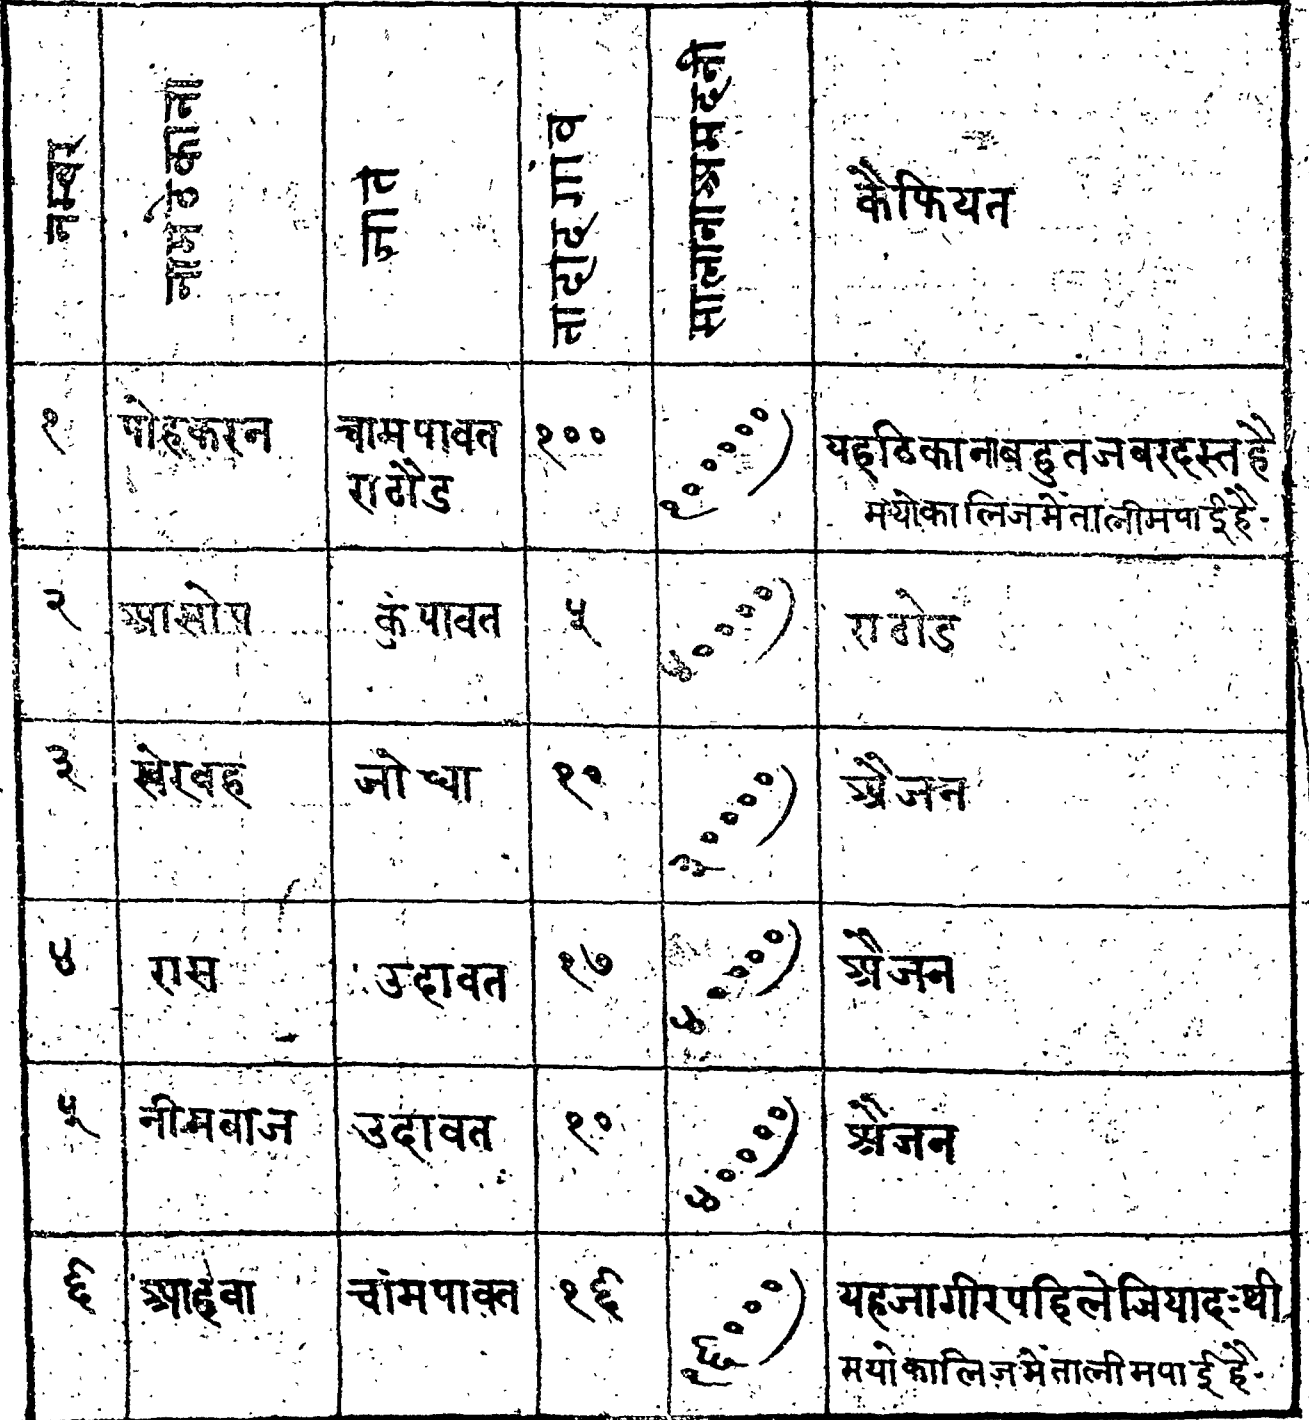 नम्बर नामठिकाना जात तादाद गांव सालानाआमदनी कैफियत
१ पोहकरन चामपावत १००  १०००००) यहठिकानाबहुतजबरदस्तहै
राठौड मयोकालिजमेंतालीमपाईहै-
२ आसोप कुंपावत ५ ४००००) राठोड
३ खेरवह जोधा १० २००००) औजन
४ रास उदावत १७ ४००००) औजन
५ नीमबाज उदावत १० ४००००) औजन
६ आहवा चांमपावत १६ १६०००) यहजागीरपहिलेजियादःथी
मयोकालिजमेंतालीमपाईहै-